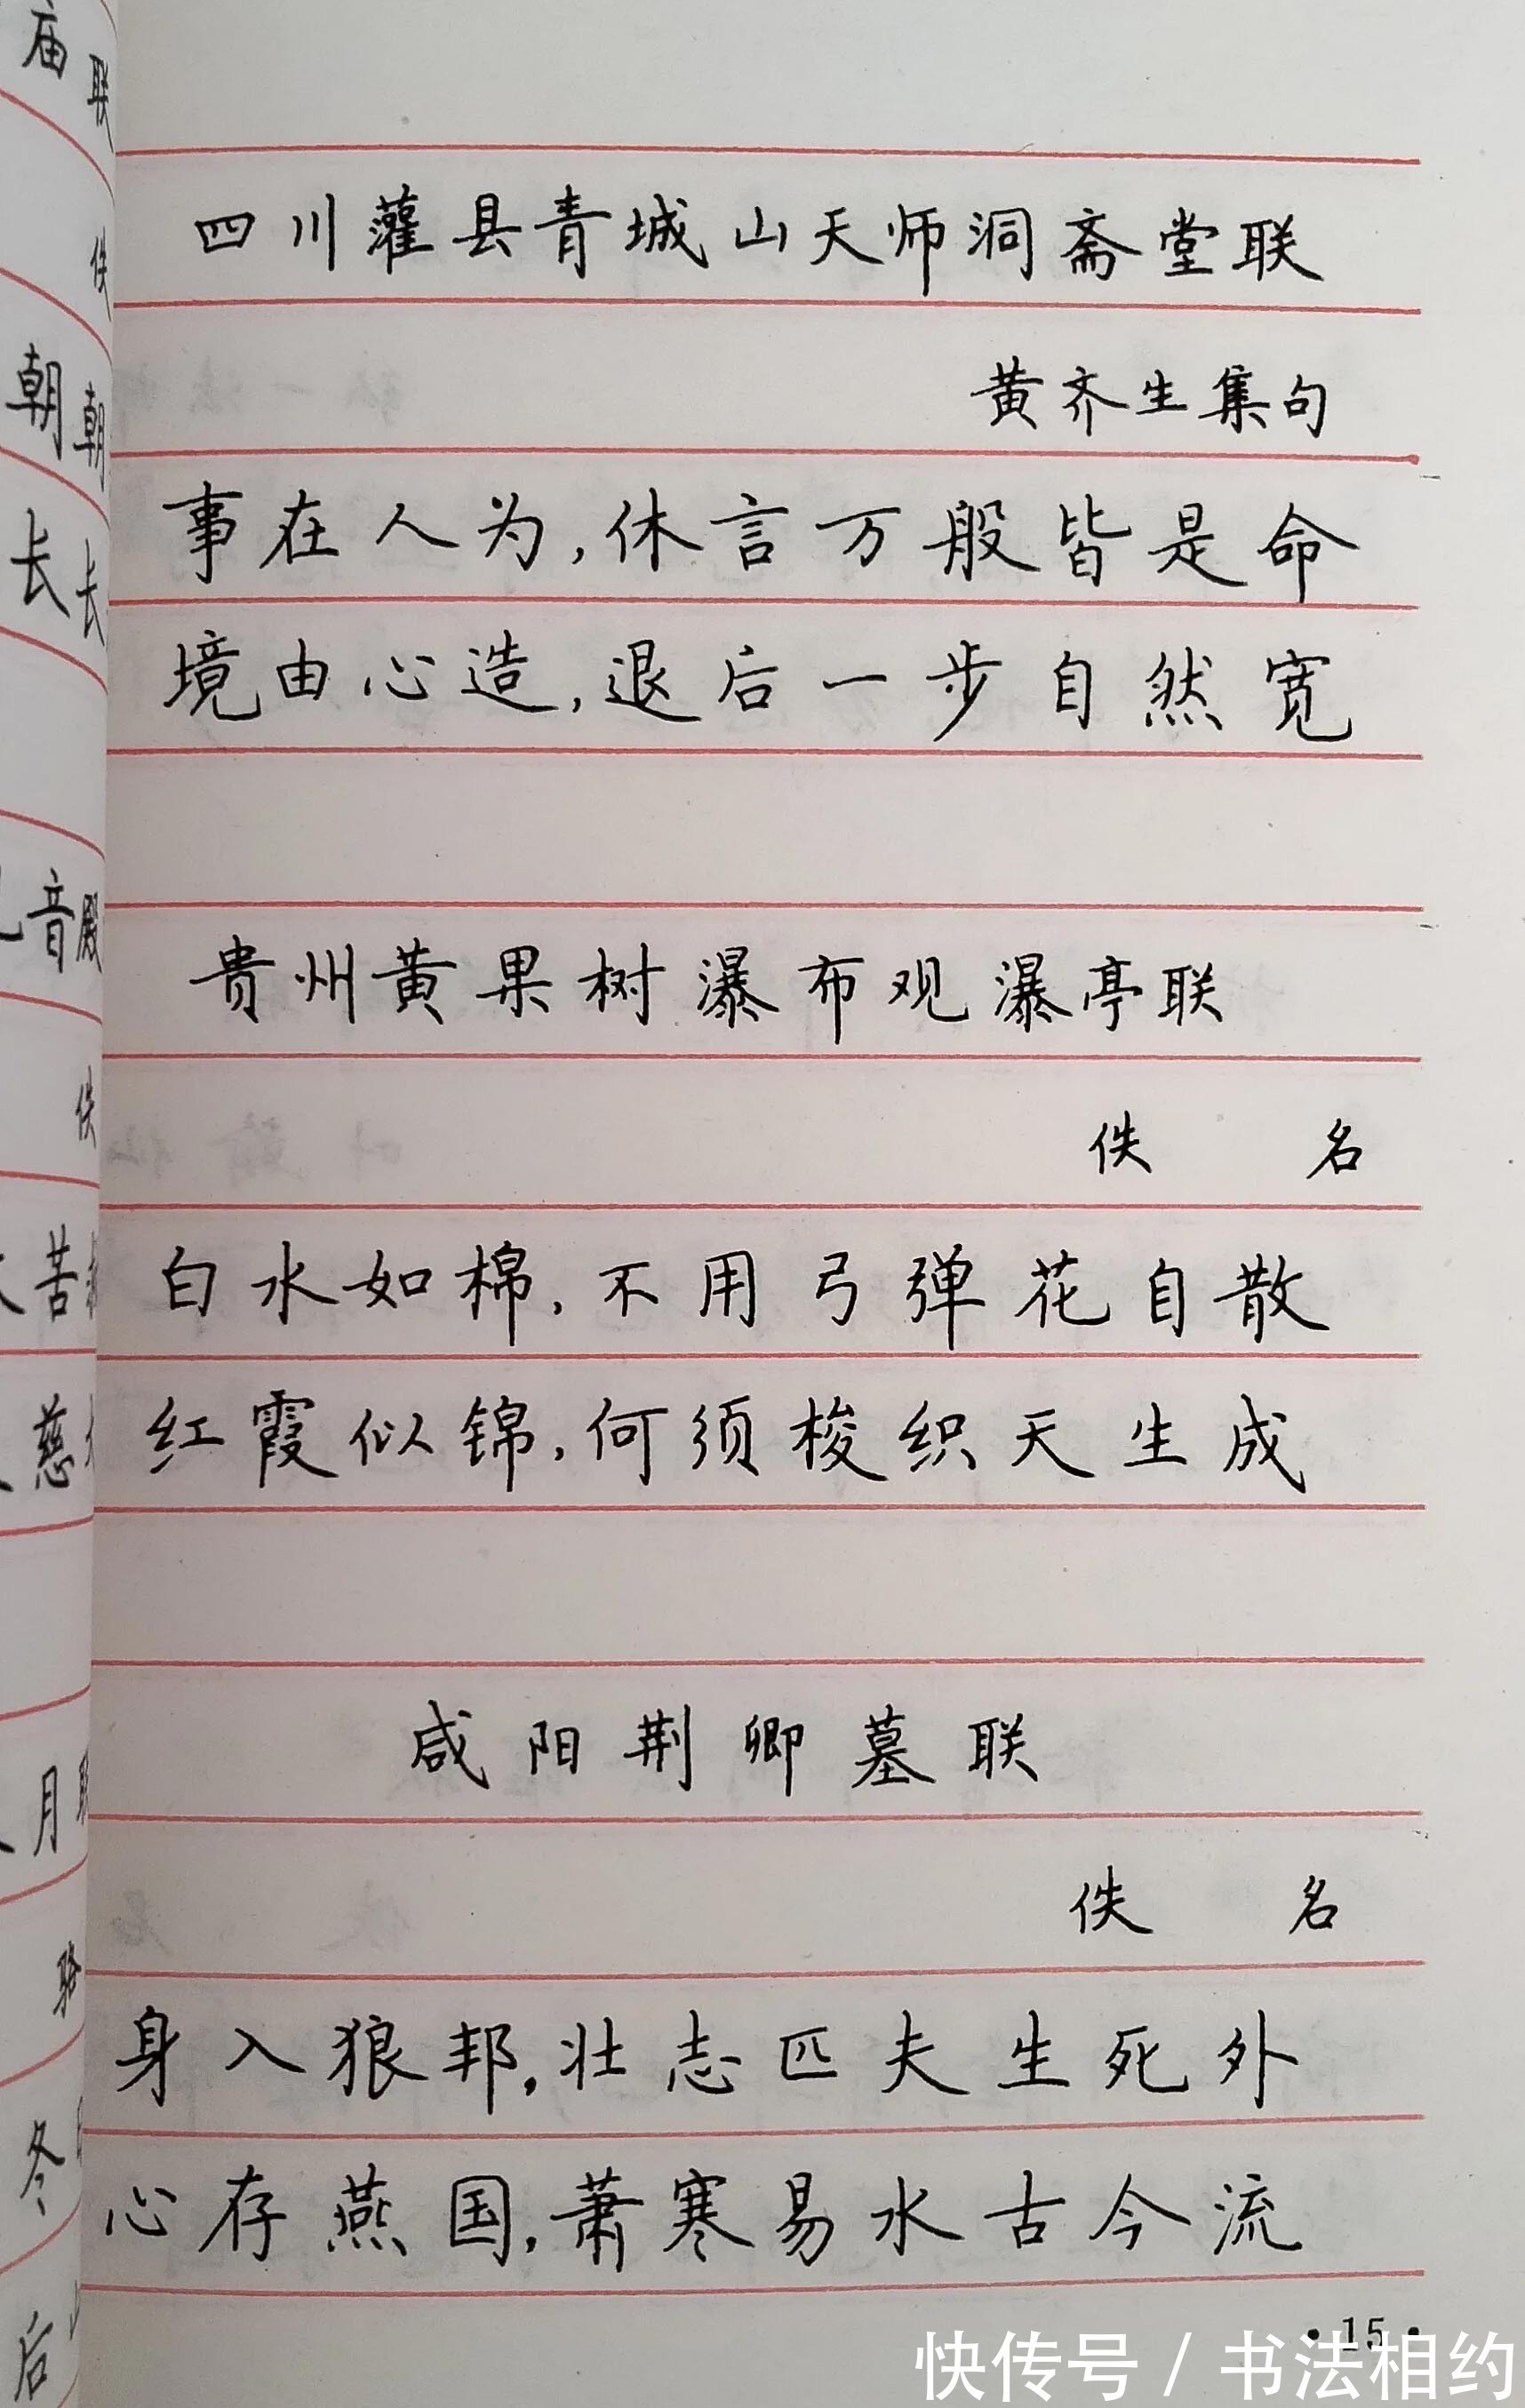 四川灌县青城山天师洞斋堂联
黄齐生集句
事在人为,休言万般皆是命
境由心造,退后一步自然宽
贵州黄果树瀑布观瀑亭联
佚 名
白水如棉,不用弓弹花自散
红霞似锦,何须梭织天生成
咸阳荆卿墓联
佚 名
身入狼邦,壮志匹夫生死外
心存燕国,萧寒易水古今流
·15·
快传号 / 书法相约
庙
联
佚
朝
朝
长
长
音
殿
佚
苦
慈
月
冬
后